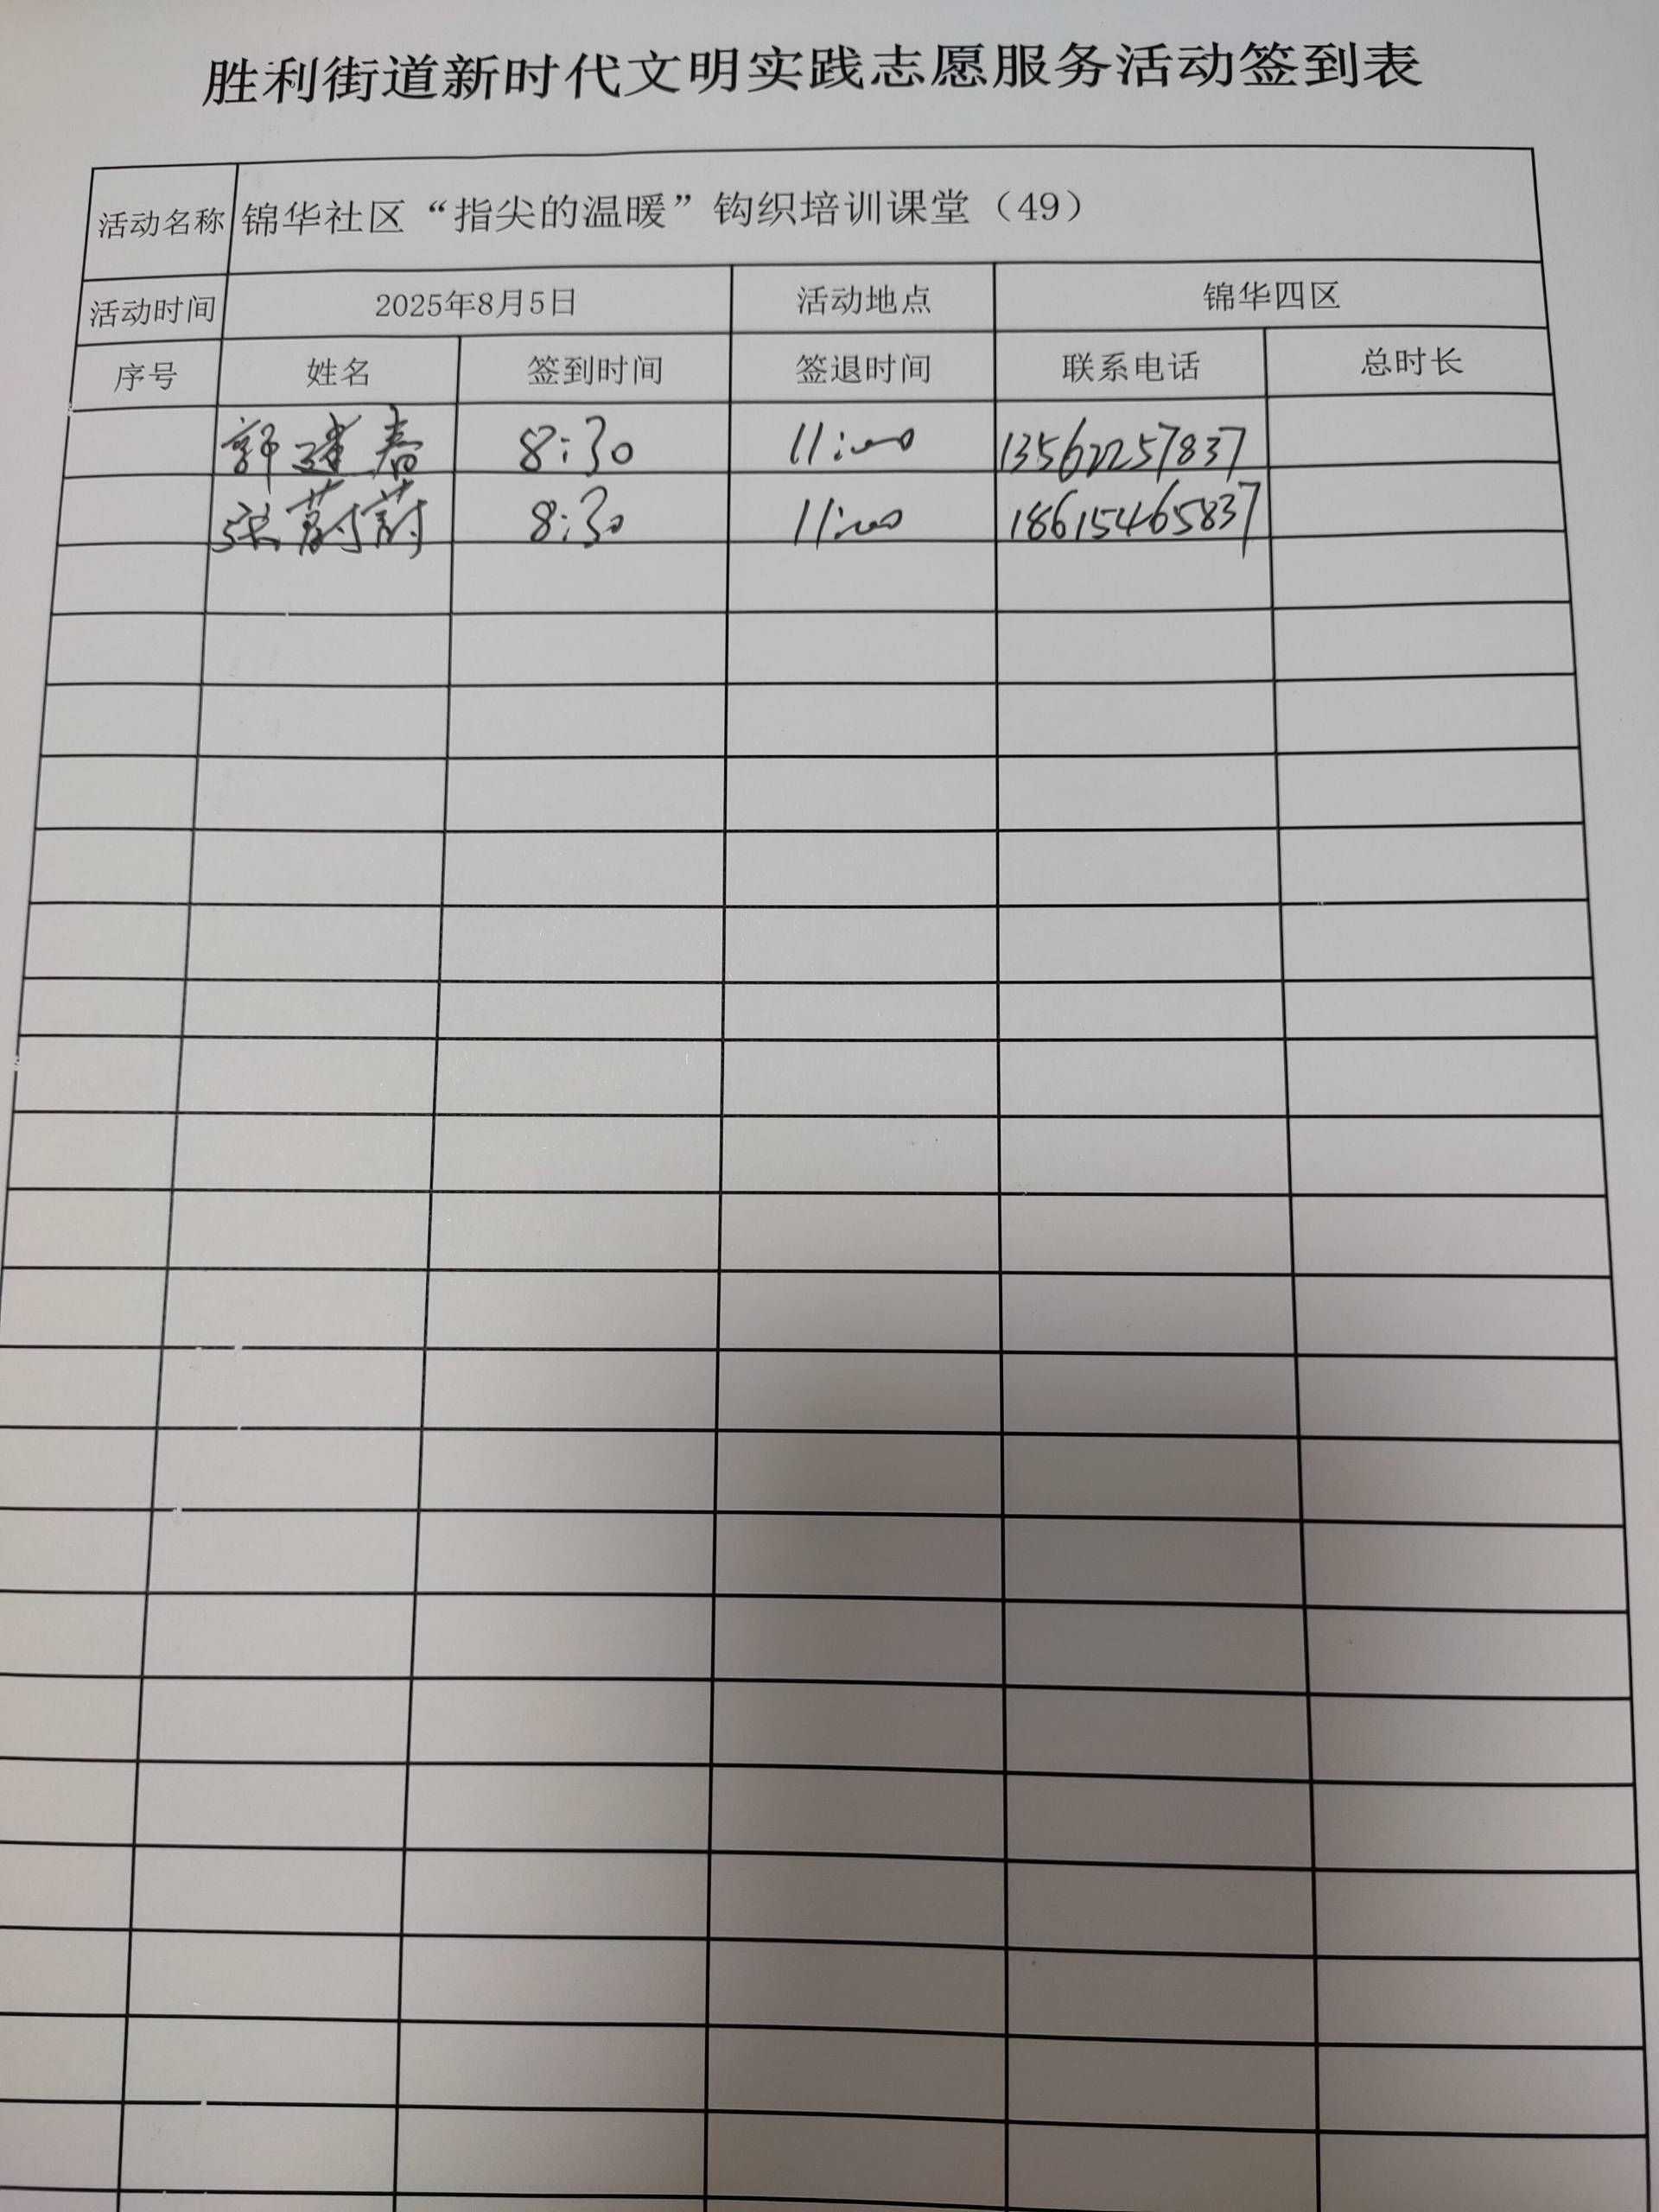 胜利街道新时代文明实践志愿服务活动签到表
活动名称 锦华社区“指尖的温暖”钩织培训课堂（49）
活动时间 2025年8月5日 活动地点 锦华四区
序号 姓名 签到时间 签退时间 联系电话 总时长
郭建春 8:30 11:00 13562257837
张蔚蔚 8:30 11:00 18615465837